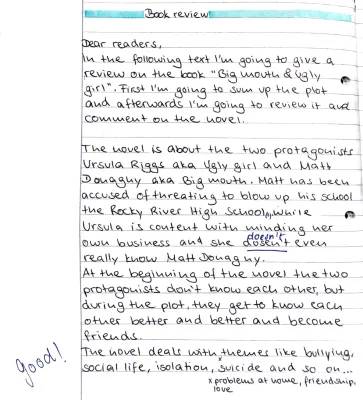 Book review
Dear readers,
In the following text I'm going to give a
review on the book "Big mouth & ugly
girl". First I'm going to sum up the plot
and afterwards I'm going to review it and
comment on the novel.
The novel is about the two protagonists
Ursula Riggs aka Ugly girl and Matt
Donaghy aka Big mouth. Matt has been
accused of threating to blow up his school
the Rocky River High School, while
Ursula is content with minding her
doesn't
own business and she dosen't even
really know Matt Donaghy.
At the beginning of the novel the two
protagonists don't know each other, but
during the plot, they get to know each
other better and better and become
friends.
The novel deals with themes like bullying,
social life, isolation, x suicide and so on...
x problems at home, friendship,
love
good!